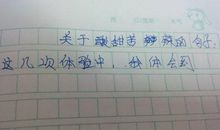 关于酸甜苦辣的句子.
这几次体验中，我体会到